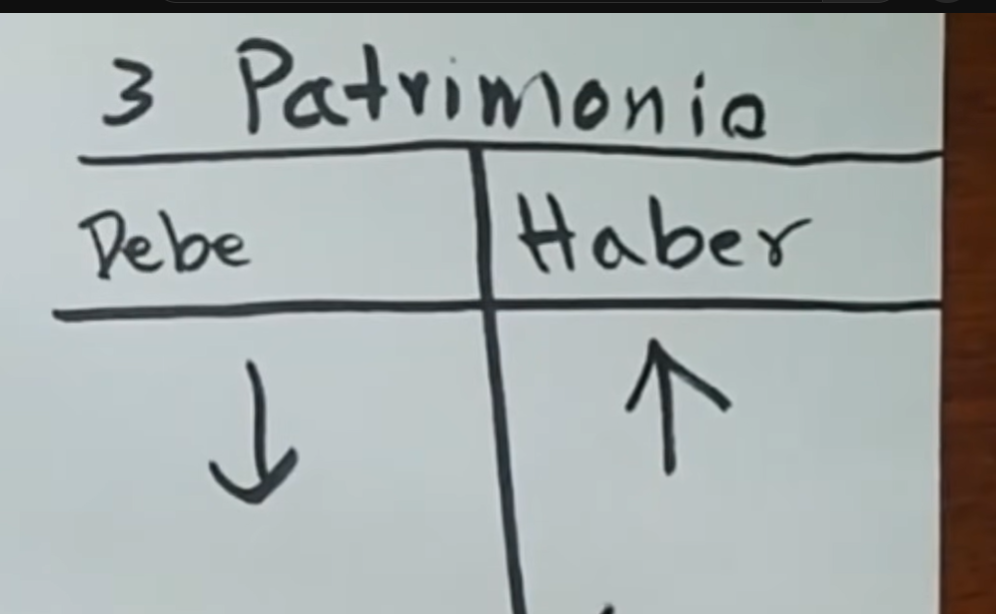 3 Patrimonio
Debe Haber
↓ ↑